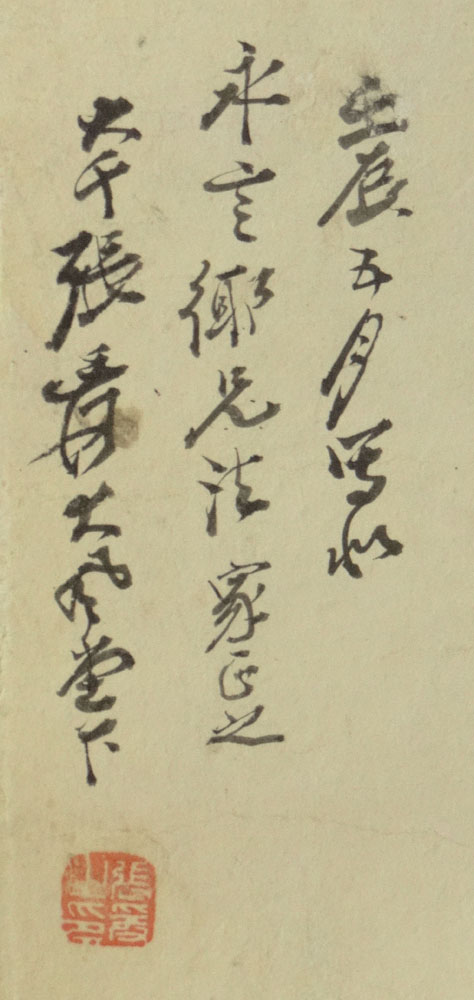 壬辰五月寫似
永言仁兄法家正之
大千張爰大風堂下
張爰之印